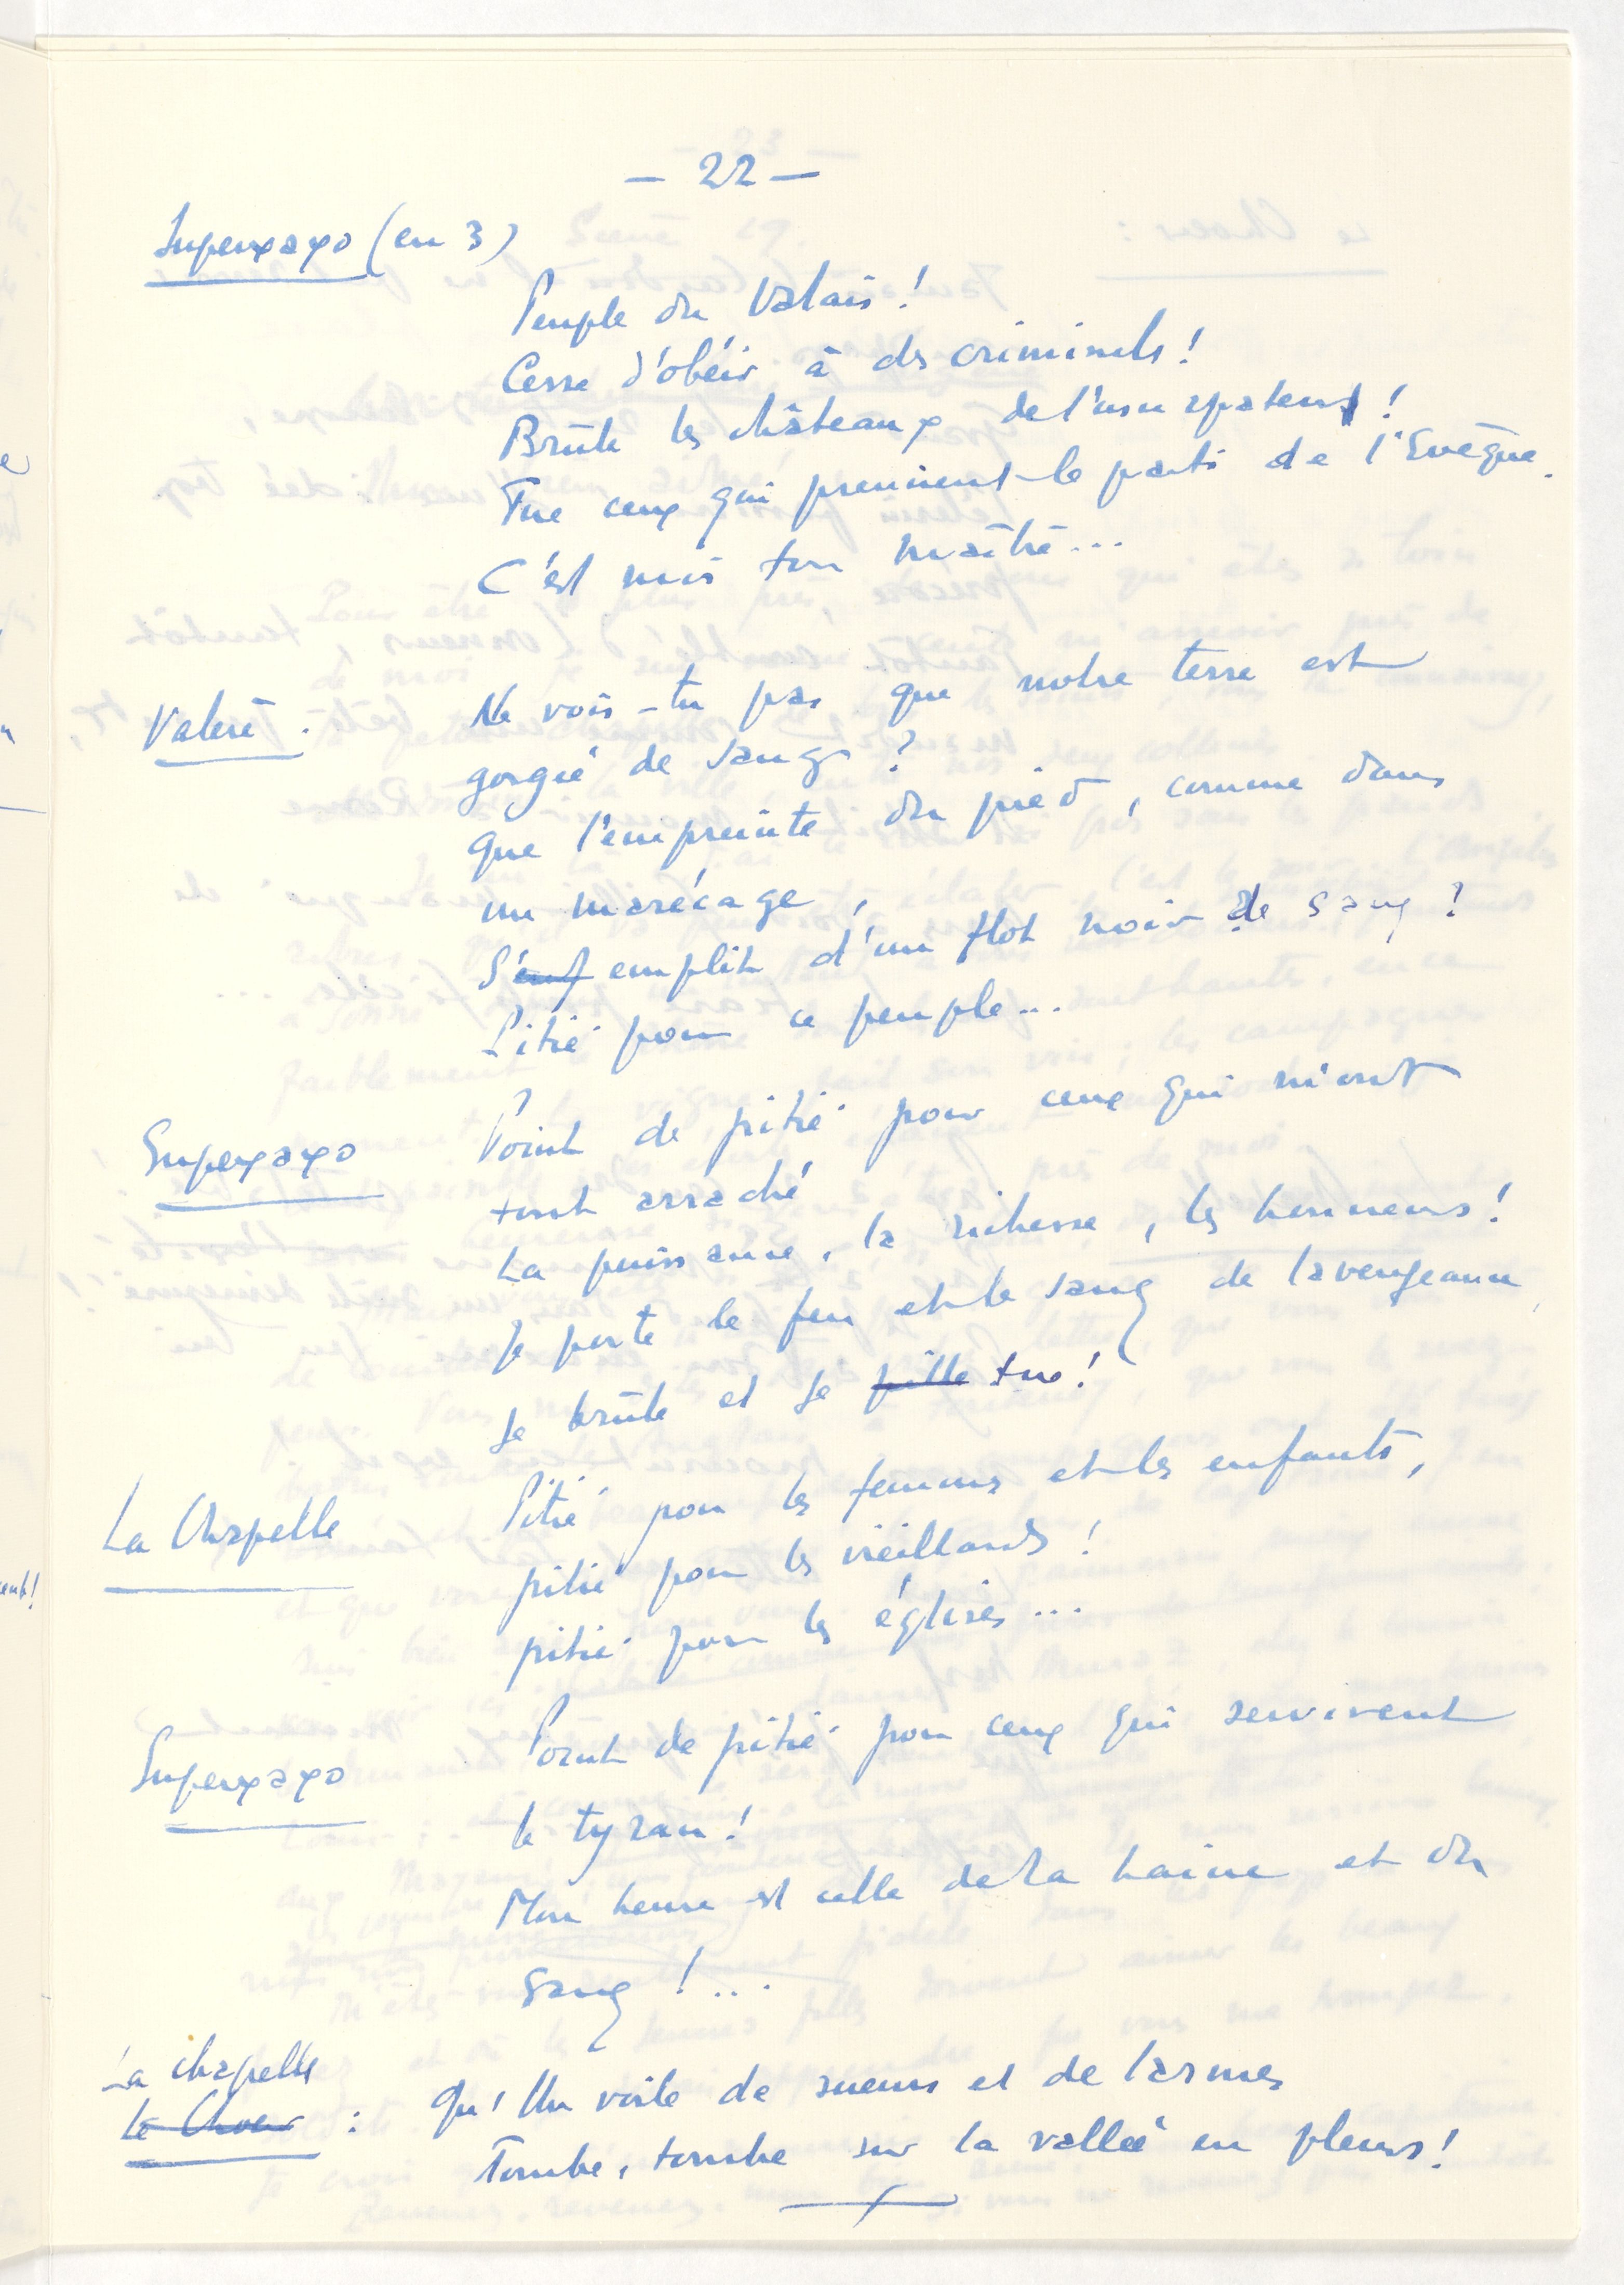 — 22 —
Supersaxo (en 3)
Peuple du Valais !
Cesse d'obéir à des criminels !
Brûle les châteaux de l'usurpateur !
Tue ceux qui prennent le parti de l'Evêque.
C'est moi ton maître...
Valère . Ne vois-tu pas que notre terre est
gorgée de sang ?
Que l'empreinte du pied, comme dans
un marécage,
S'emplit d'un flot noir de sang ?
Pitié pour ce peuple...
Supersaxo Point de pitié pour ceux qui m'ont
tout arraché
La puissance, la richesse, les honneurs !
Je porte le feu et le sang de la vengeance,
Je brûle et je pille tue !
La Chapelle Pitié pour les femmes et les enfants,
pitié pour les vieillards !
pitié pour les églises...
Supersaxo Point de pitié pour ceux qui servirent
le tyran !
Mon heure est celle de la haine et du
sang !...
La chapelle
Le Choeur : Qu'Un voile de sueurs et de larmes
Tombe, tombe sur la vallée en pleurs !